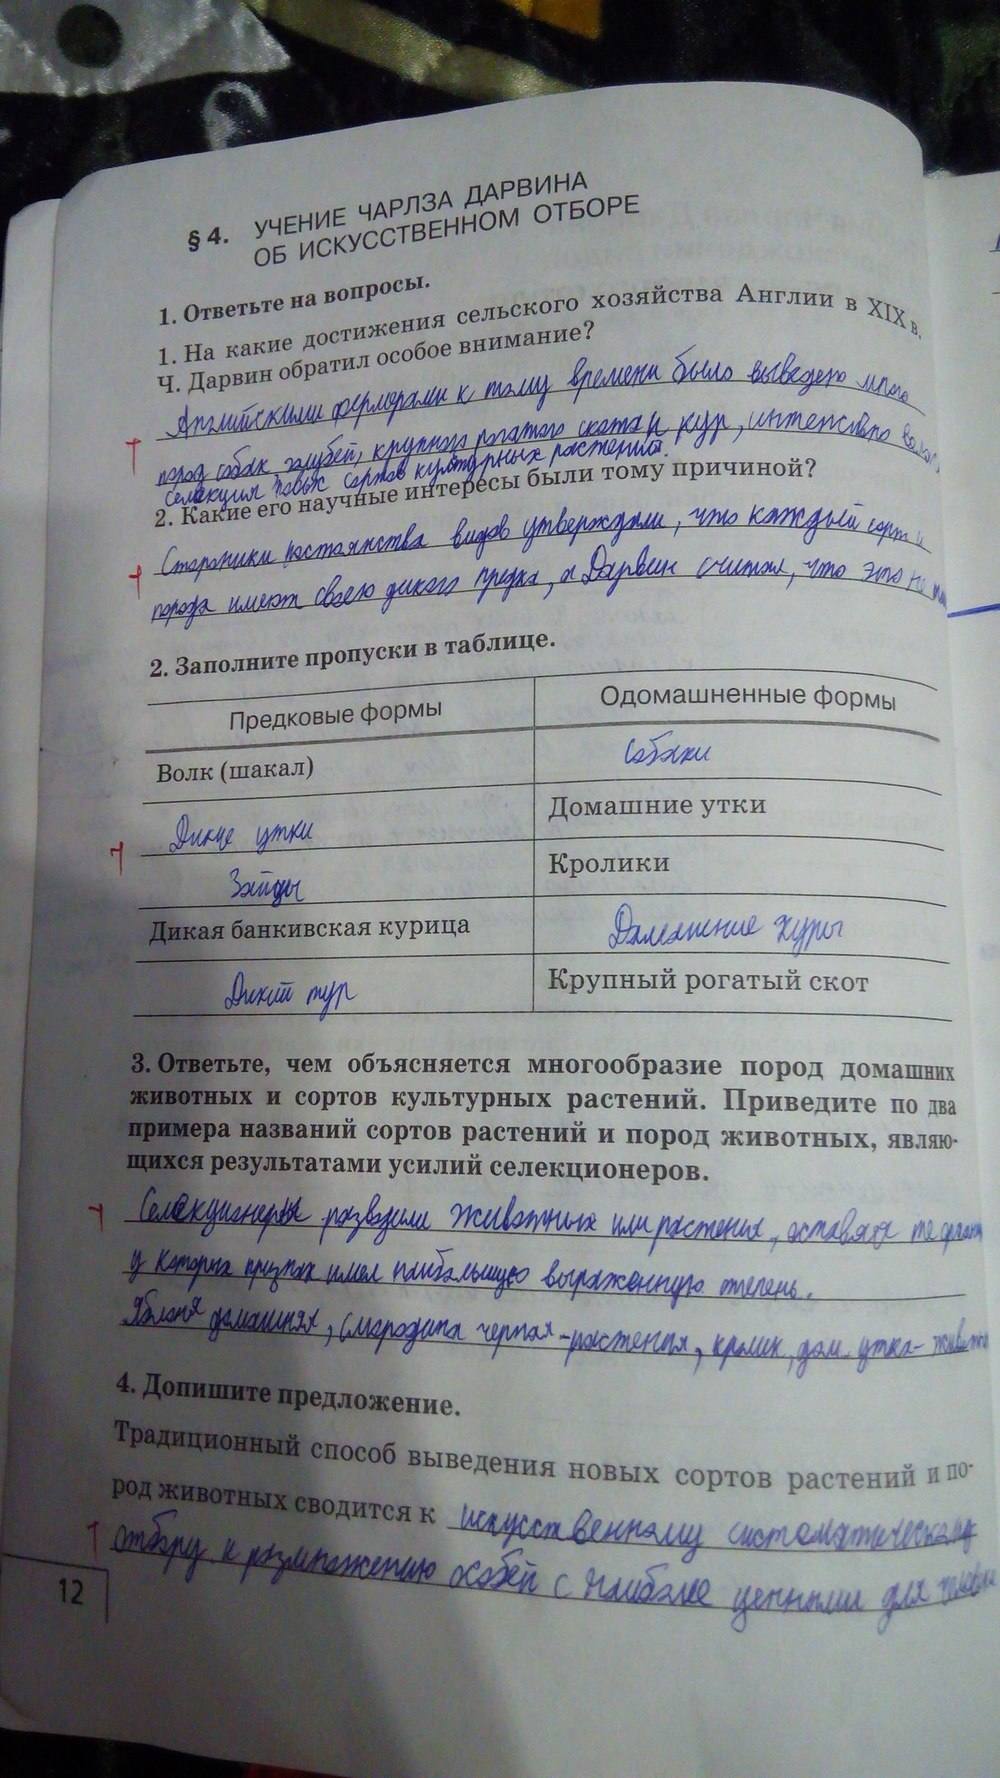 § 4. УЧЕНИЕ ЧАРЛЗА ДАРВИНА
ОБ ИСКУССТВЕННОМ ОТБОРЕ
1. Ответьте на вопросы.
1. На какие достижения сельского хозяйства Англии в XIX в.
Ч. Дарвин обратил особое внимание?
Английскими фермерами к тому времени было выведено много
пород собак, голубей, крупного рогатого скота и кур, интенсивно
селекция новых сортов культурных растений.
2. Какие его научные интересы были тому причиной?
Стороники постоянства видов утверждали, что каждый сорт и
порода имеют своего дикого предка, а Дарвин считал, что это не
2. Заполните пропуски в таблице.
Предковые формы Одомашненные формы
Волк (шакал) Собаки
Дикие утки Домашние утки
Зайцы Кролики
Дикая банкивская курица Домашние куры
Дикий тур Крупный рогатый скот
3. Ответьте, чем объясняется многообразие пород домашних
животных и сортов культурных растений. Приведите по два
примера названий сортов растений и пород животных, являю-
щихся результатами усилий селекционеров.
Селекционеры разводили животных или растения, оставляя те
у которых признак имел наибольшую выраженную степень.
Яблоня домашняя, смородина черная - растения, кролик, дом. утка -
4. Допишите предложение.
Традиционный способ выведения новых сортов растений и по-
род животных сводится к искусственному систематическому
отбору и размножению особей с наиболее ценными для
12